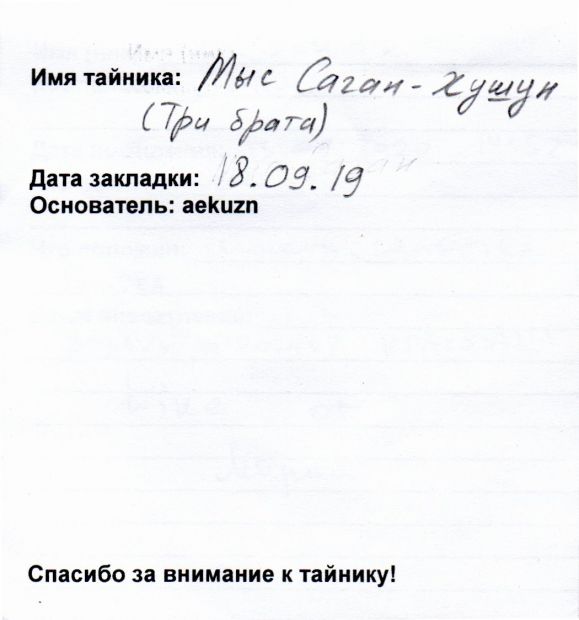 Имя тайника: Мыс Саган-Хушун
(Три брата)
Дата закладки: 18.09.19
Основатель: aekuzn
Спасибо за внимание к тайнику!